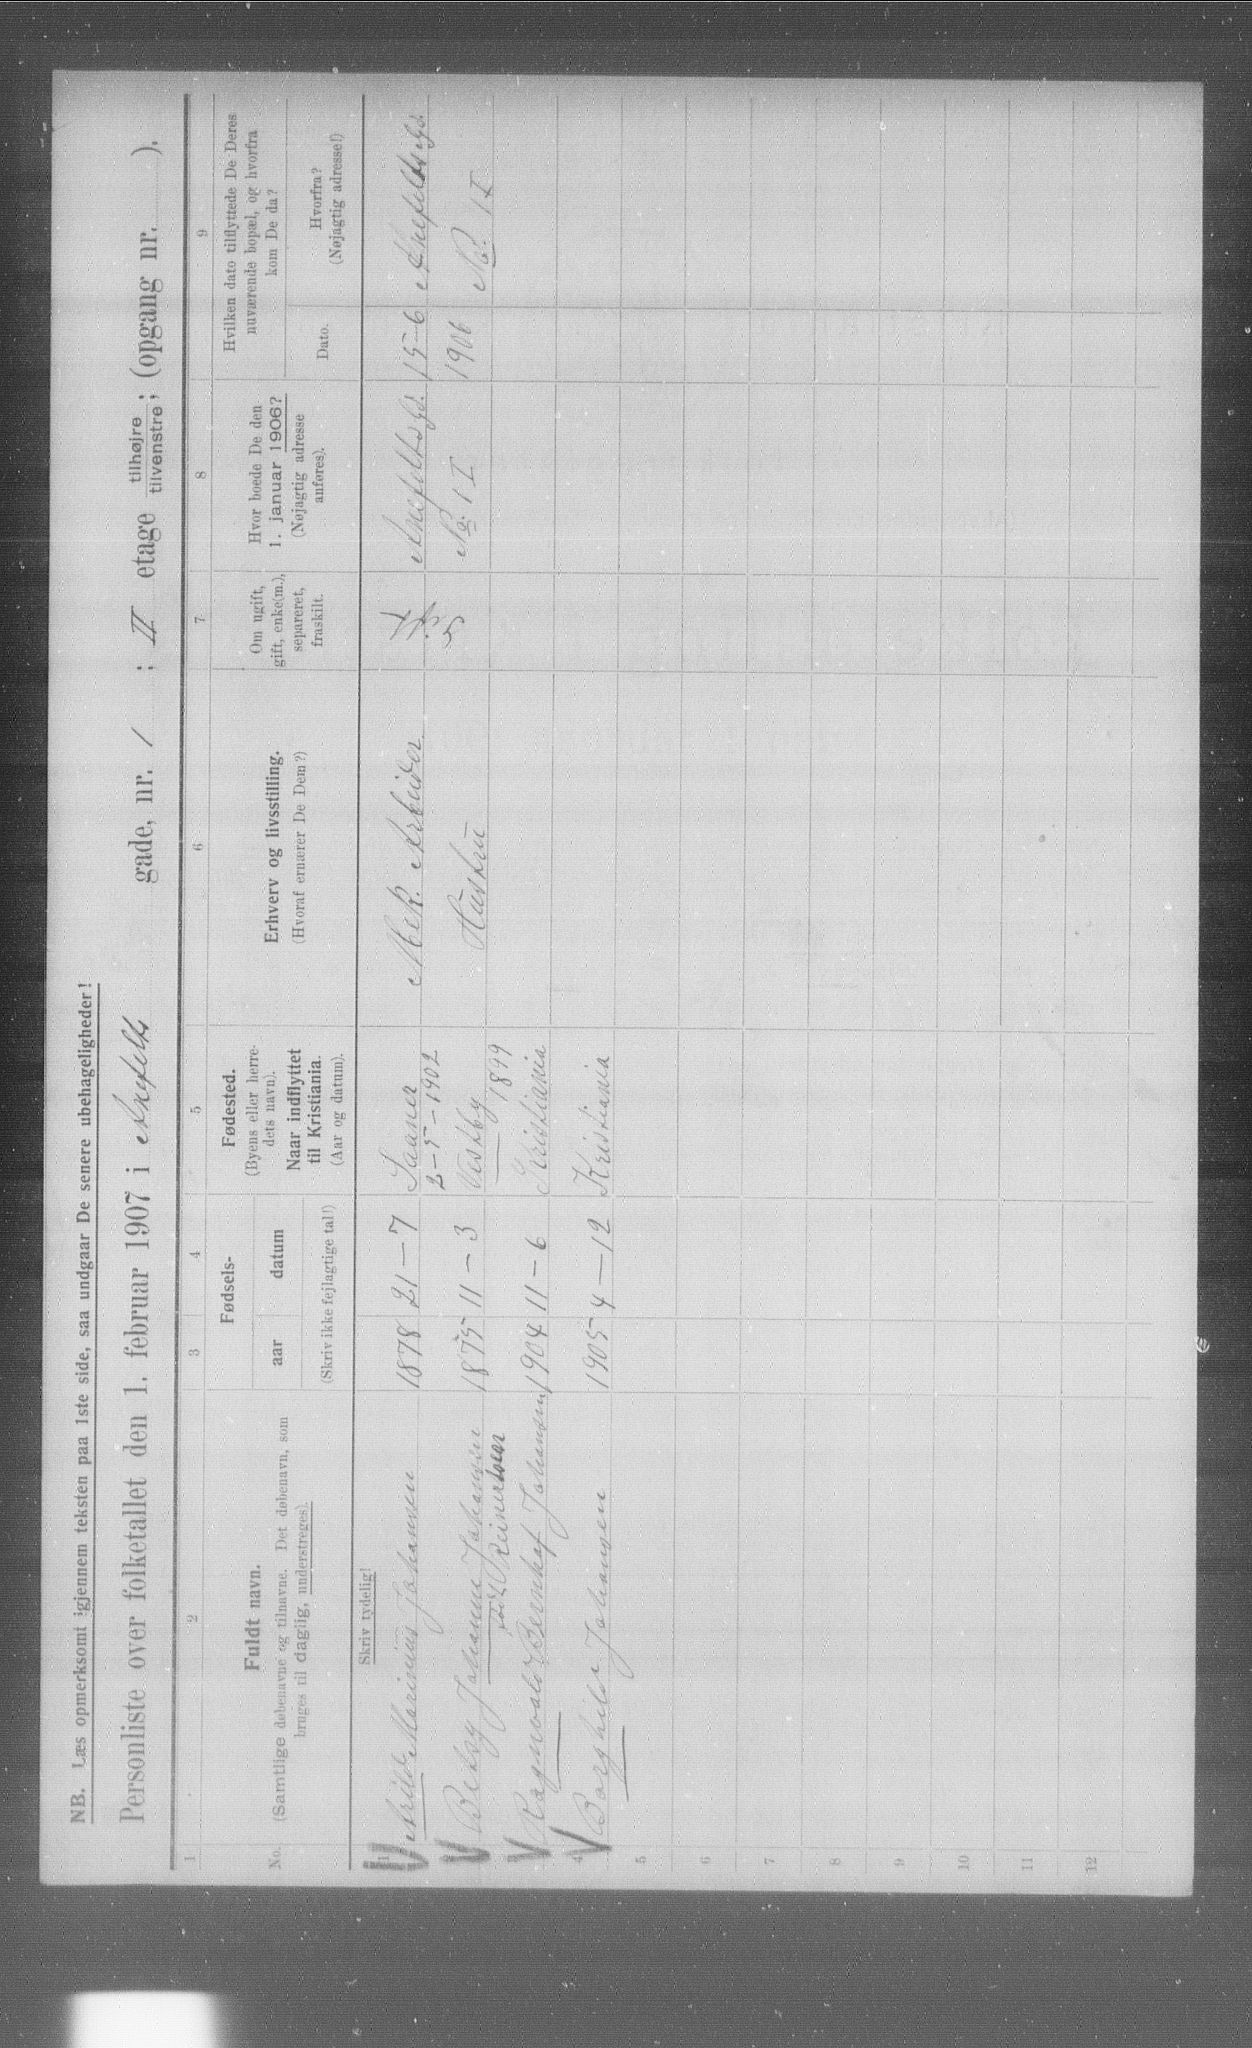 NB. Læs opmerksomt igjennem teksten paa 1ste side, saa undgaar De senere ubehageligheder!
Personliste over folketallet den 1. februar 1907 i Arefelts gade, nr. 1 ; II etage tilhøjre tilvenstre; (opgang nr. ).
1 2 3 4 5 6 7 8 9
No.
Fuldt navn.
(Samtlige døbenavne og tilnavne. Det døbenavn, som
bruges til daglig, understreges).
Fødsels-
aar datum
(Skriv ikke fejlagtige tal!)
Fødested.
(Byens eller herre-
dets navn).
Naar indflyttet
til Kristiania.
(Aar og datum).
Erhverv og livsstilling.
(Hvoraf ernærer De Dem?)
Om ugift,
gift, enke(m.),
separeret,
fraskilt.
Hvor boede De den
1. januar 1906?
(Nøjagtig adresse
anføres).
Hvilken dato tilflyttede De Deres
nuværende bopæl, og hvorfra
kom De da?
Dato.
Hvorfra?
(Nøjagtig adresse!)
Skriv tydelig!
1 Arild Marinius Johansen 1878 21-7 Saaner Mek. Arbeider Arefeltsgd. 15-6 Arefeltsgd.
2-5-1902
2 Betsy Johanne Johansen 1875 11-3 Vestby Hustru No. 1 I 1906 No. 1 I
født Reinertsen 1899
3 Ragnvald Bernhof Johansen 1904 11-6 Kristiania
4 Borghild Johansen 1905 4-12 Kristiania
5
6
7
8
9
10
11
12